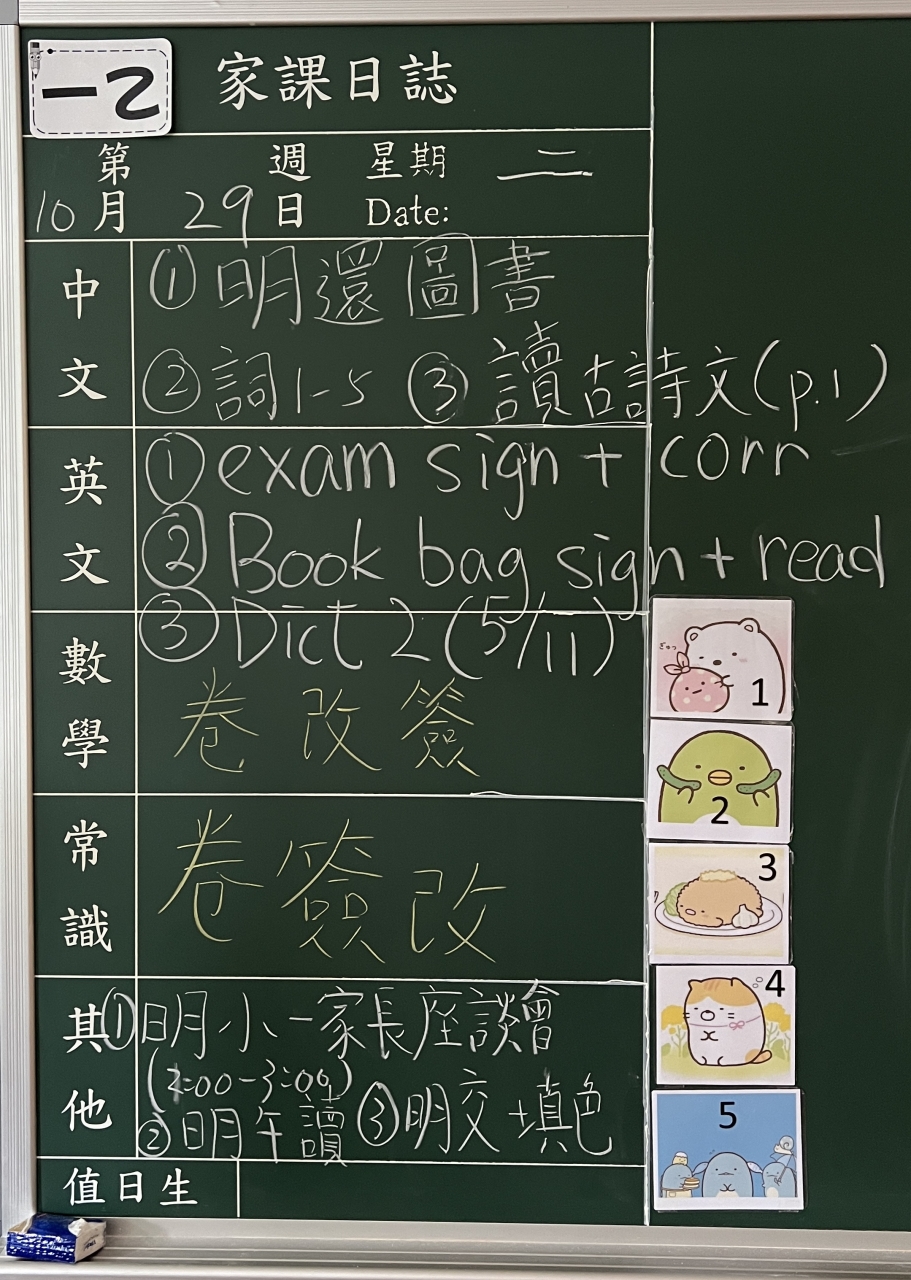 一乙 家課日誌
第 週 星期 二
10月 29日 Date:
中文
①明還圖書
②詞1-5 ③讀古詩文(p.1)
英文
①exam sign + corr
②Book bag sign + read
③Dict 2 (5/11)
數學
卷改簽
常識
卷簽改
其他
①明小一家長座談會
(2:00-3:00)
②明午讀 ③明交填色
值日生
1
2
3
4
5